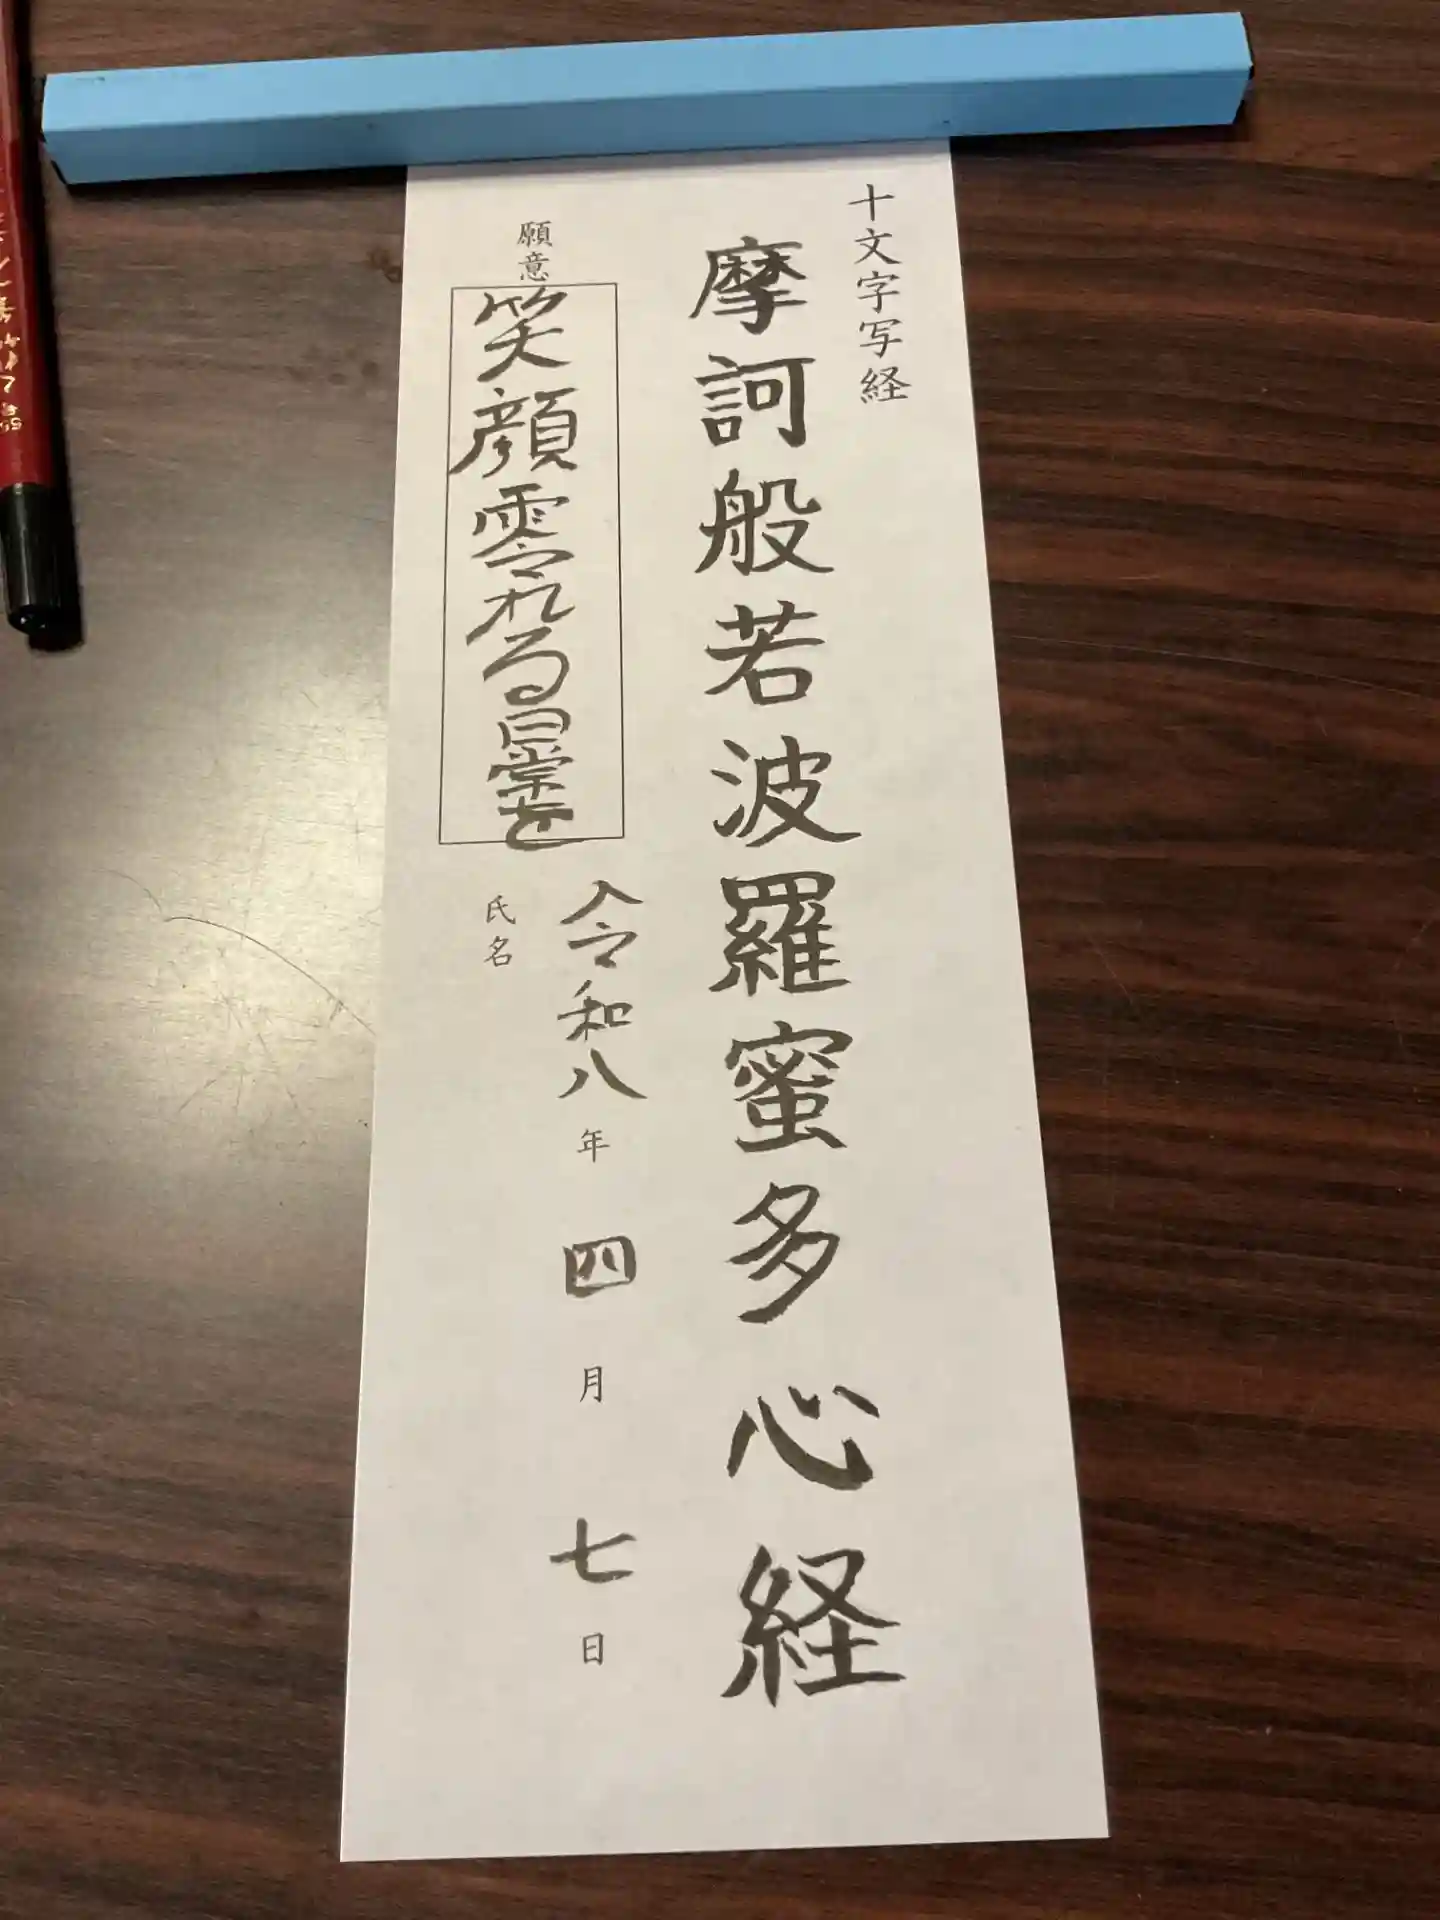 十文字写経
摩訶般若波羅蜜多心経
願意
笑顔零れる日常を
令和八年四月七日
氏名